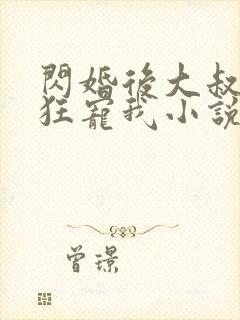 閃婚後大叔
狂寵我小說
曾璟